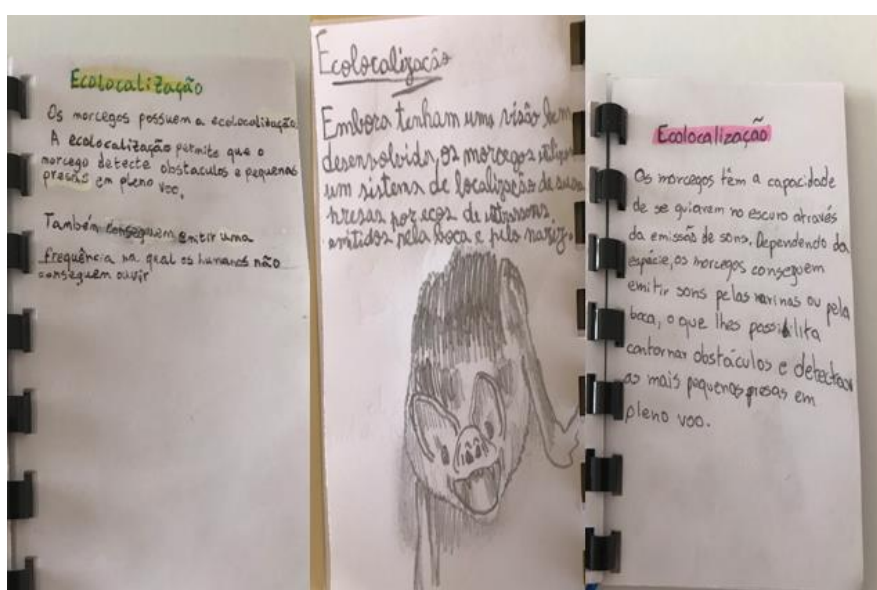 Ecolocalização
Os morcegos possuem a ecolocalização.
A ecolocalização permite que o
morcego detecte obstaculos e pequenas
presas em pleno voo.
Também conseguem emitir uma
frequência na qual os humanos não
conseguem ouvir
Ecolocalização
Embora tenham uma visão bem
desenvolvida, os morcegos
um sistema de localização de suas
presas por ecos de ultrassons,
emitidos pela boca e pelo nariz.
Ecolocalização
Os morcegos têm a capacidade
de se guiarem no escuro através
da emissão de sons. Dependendo da
espácie, os morcegos conseguem
emitir sons pelas narinas ou pela
boca, o que lhes possibilita
contornar obstáculos e detectar
as mais pequenas presas em
pleno voo.